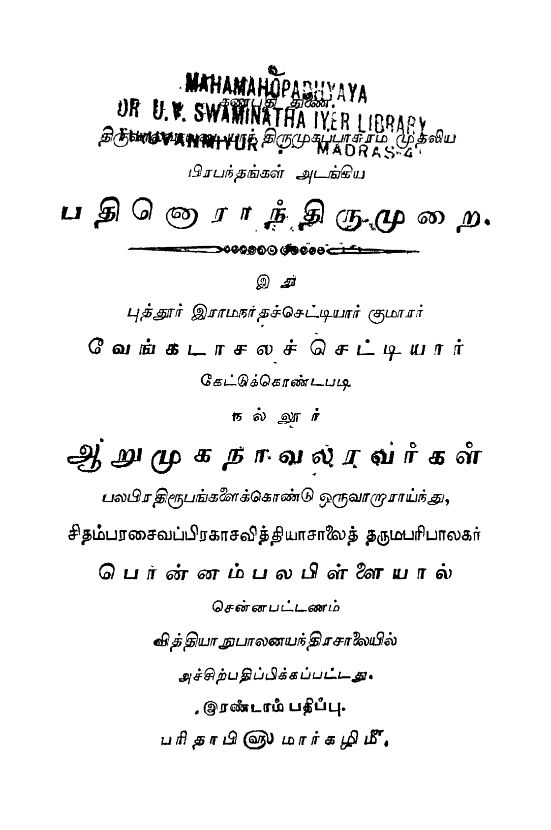 உ
MAHAMAHOPADHYAYA
கணபதி துணை.
DR U.V. SWAMINATHA IYER LIBRARY
திருவாலவாயுடையார் திருமுகப்பாசுரம் முதலிய
TIRUVANMIYUR MADRAS-4
பிரபந்தங்கள் அடங்கிய
பதினொராந்திருமுறை.
இது
புத்தூர் இராமநாதச்செட்டியார் குமாரர்
வேங்கடாசலச் செட்டியார்
கேட்டுக்கொண்டபடி
நல்லூர்
ஆறுமுகநாவலரவர்கள்
பலபிரதிரூபங்களைக்கொண்டு ஒருவாறாராய்ந்து,
சிதம்பரசைவப்பிரகாசவித்தியாசாலைத் தருமபரிபாலகர்
பொன்னம்பலபிள்ளையால்
சென்னபட்டணம்
வித்தியாநுபாலனயந்திரசாலையில்
அச்சிற்பதிப்பிக்கப்பட்டது.
இரண்டாம் பதிப்பு.
பரிதாபி௵ மார்கழி௴.